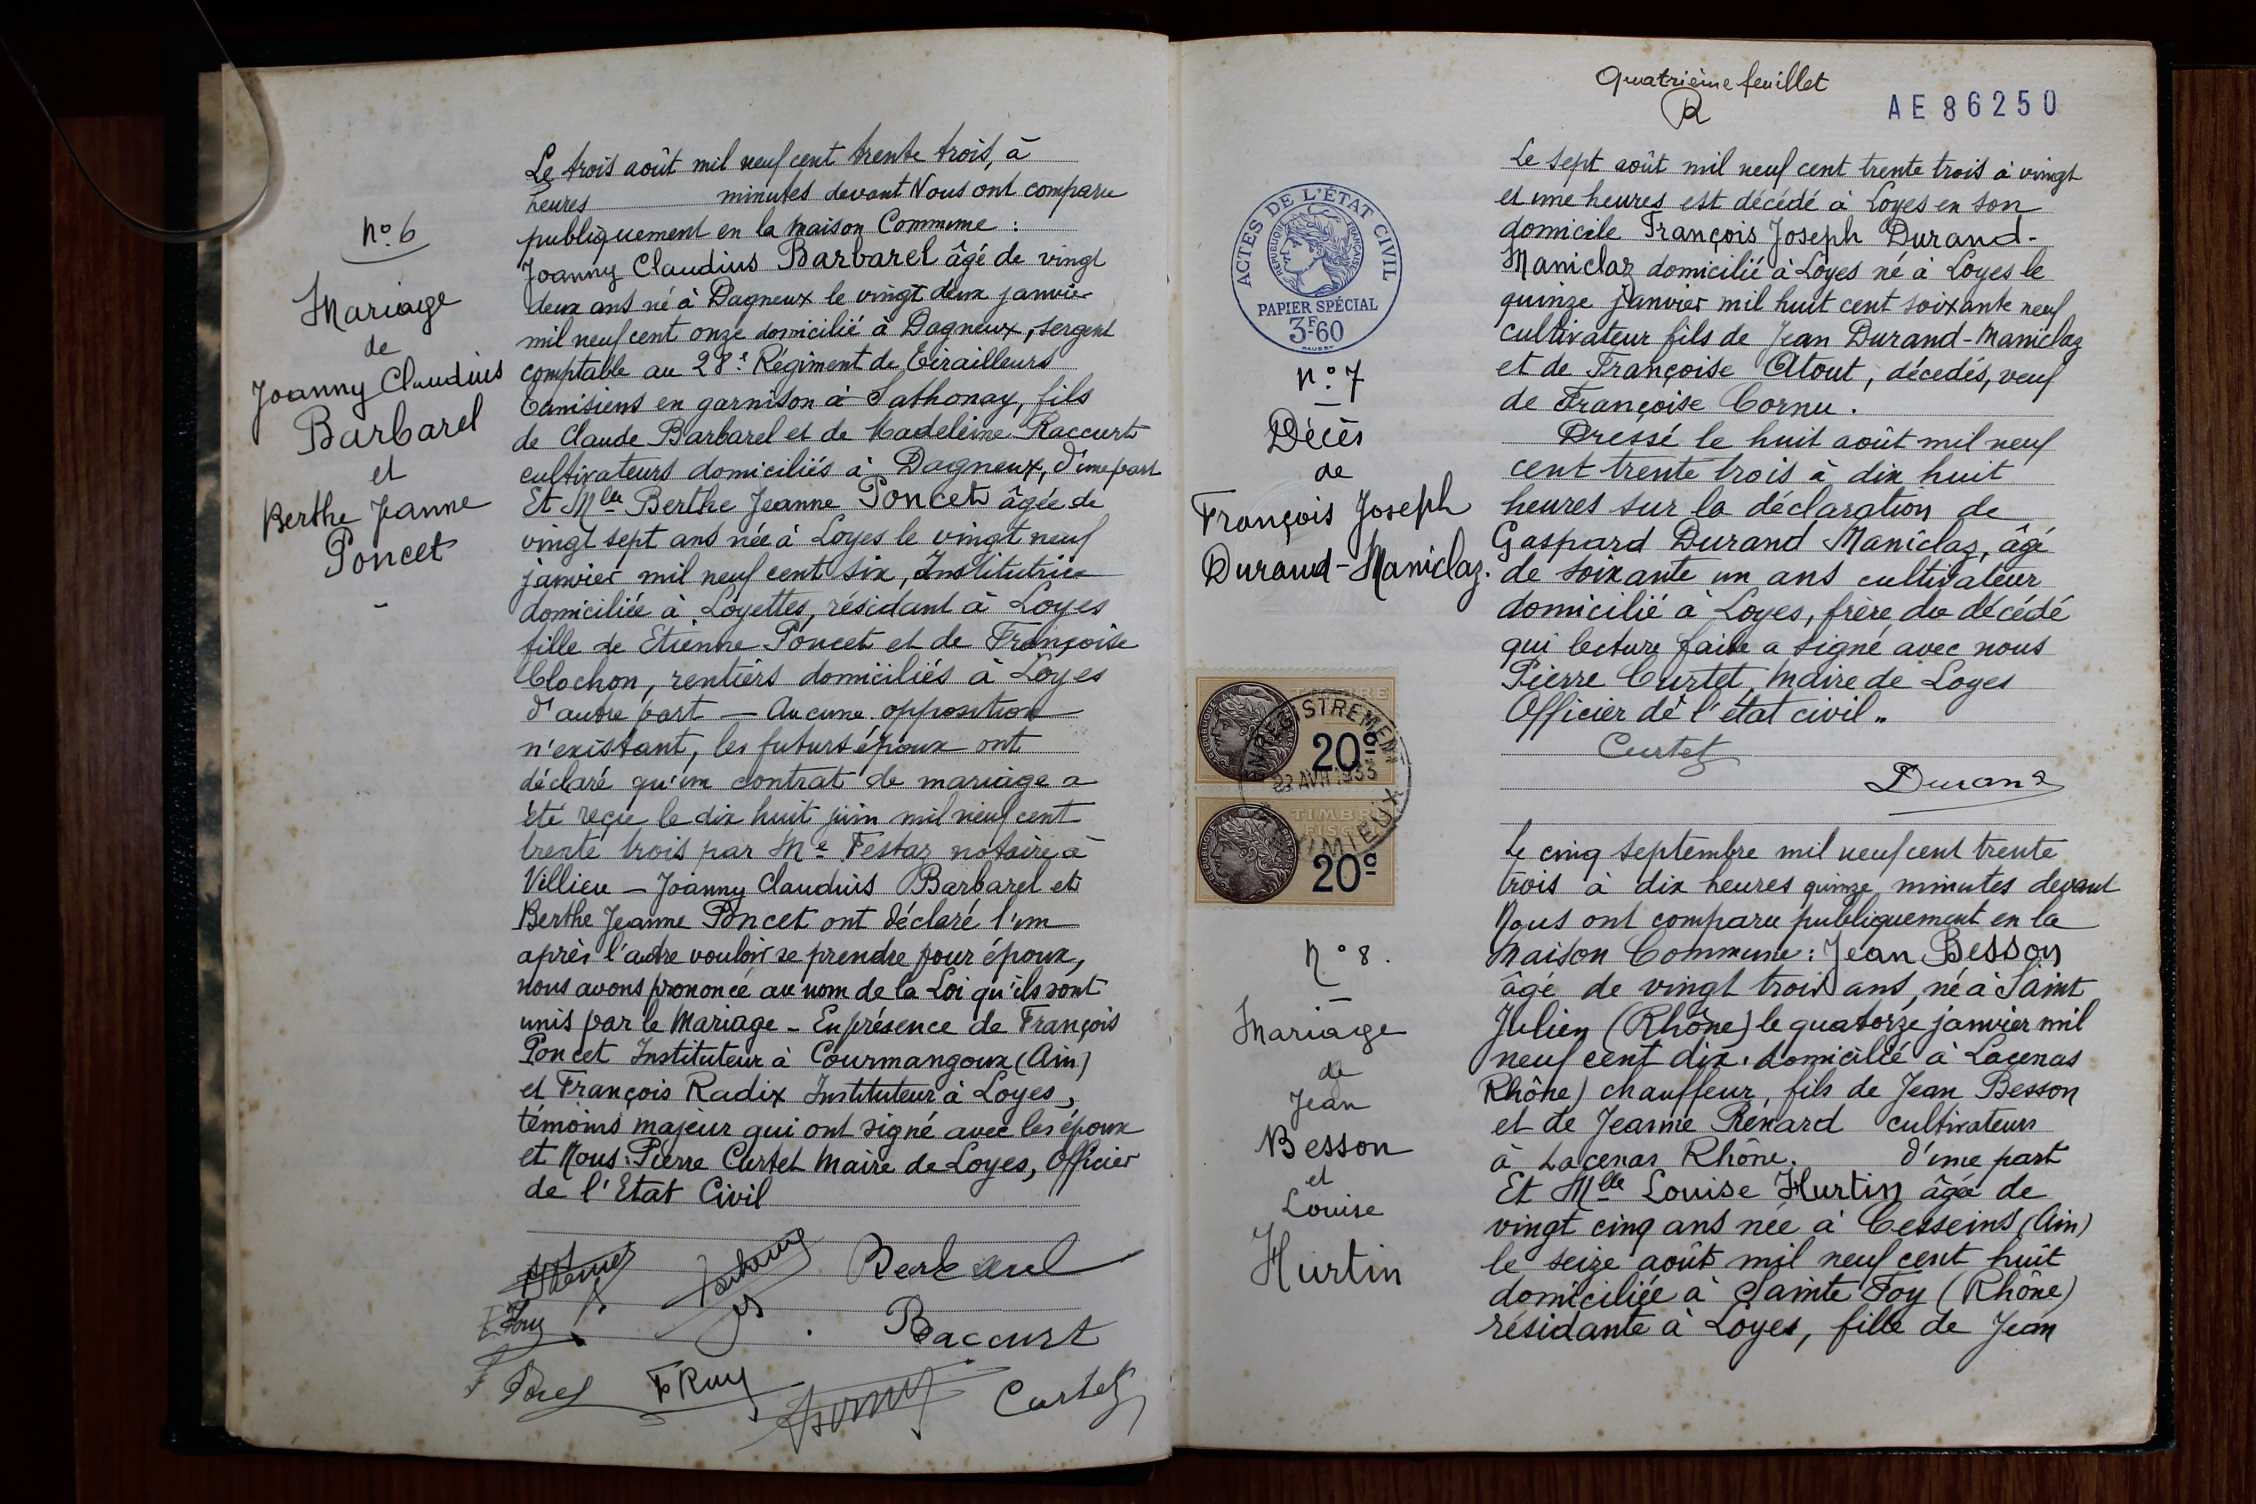 nº 6
Mariage
de
Joanny Claudius
Barbarel
et
Berthe Jeanne
Poncet
Le trois août mil neuf cent trente trois, à
heures minutes devant Nous ont comparu
publiquement en la maison Commune :
Joanny Claudius Barbarel âgé de vingt
deux ans né à Dagneux le vingt deux janvier
mil neuf cent onze domicilié à Dagneux, sergent
comptable au 28e Régiment de Tirailleurs
Tunisiens en garnison à Sathonay, fils
de Claude Barbarel et de Madeleine Raccurt
cultivateurs domiciliés à Dagneux, d'une part
Et Mlle Berthe Jeanne Poncet âgée de
vingt sept ans née à Loyes le vingt neuf
janvier mil neuf cent six, Institutrice
domiciliée à Loyettes, résidant à Loyes
fille de Etienne Poncet et de Françoise
Clochon, rentiers domiciliés à Loyes
d'autre part — Aucune opposition
n'existant, les futurs époux ont
déclaré qu'un contrat de mariage a
été reçu le dix huit juin mil neuf cent
trente trois par Me Festaz notaire à
Villieu — Joanny Claudius Barbarel et
Berthe Jeanne Poncet ont déclaré l'un
après l'autre vouloir se prendre pour époux,
nous avons prononcé au nom de la Loi qu'ils sont
unis par le Mariage - En présence de François
Poncet Instituteur à Courmangoux (Ain)
et François Radix Instituteur à Loyes,
témoins majeur qui ont signé avec les époux
et Nous Pierre Curtet Maire de Loyes, Officier
de l'Etat Civil
Barbarel
Raccurt
Curtet
Quatrième feuillet
AE 86250
ACTES DE L'ÉTAT CIVIL
RÉPUBLIQUE FRANÇAISE
PAPIER SPÉCIAL
3F-60
n° 7
Décès
de
François Joseph
Durand-Maniclaz.
Le sept août mil neuf cent trente trois à vingt
et une heures est décédé à Loyes en son
domicile François Joseph Durand-
Maniclaz domicilié à Loyes né à Loyes le
quinze janvier mil huit cent soixante neuf
cultivateur fils de Jean Durand-Maniclaz
et de Françoise Atout, décédés, veuf
de Françoise Cornu.
Dressé le huit août mil neuf
cent trente trois à dix huit
heures sur la déclaration de
Gaspard Durand Maniclaz, âgé
de soixante un ans cultivateur
domicilié à Loyes, frère du décédé
qui lecture faite a signé avec nous
Pierre Curtet, Maire de Loyes
Officier de l'état civil
Curtet
Durand
TIMBRE
20c
ENREGISTREMENT
22 AVR 1933
MEXIMIEUX
TIMBRE
FISCAL
20c
N° 8.
Mariage
de
Jean
Besson
et
Louise
Hurtin
Le cinq septembre mil neuf cent trente
trois à dix heures quinze minutes devant
Nous ont comparu publiquement en la
Maison Commune : Jean Besson
âgé de vingt trois ans, né à Saint
Julien (Rhône) le quatorze janvier mil
neuf cent dix. domicilié à Lacenas
Rhône) chauffeur, fils de Jean Besson
et de Jeanne Renard cultivateurs
à Lacenas Rhône. d'une part
Et Mlle Louise Hurtin âgée de
vingt cinq ans née à Cesseins (Ain)
le seize août mil neuf cent huit
domiciliée à Sainte Foy (Rhône)
résidante à Loyes, fille de Jean